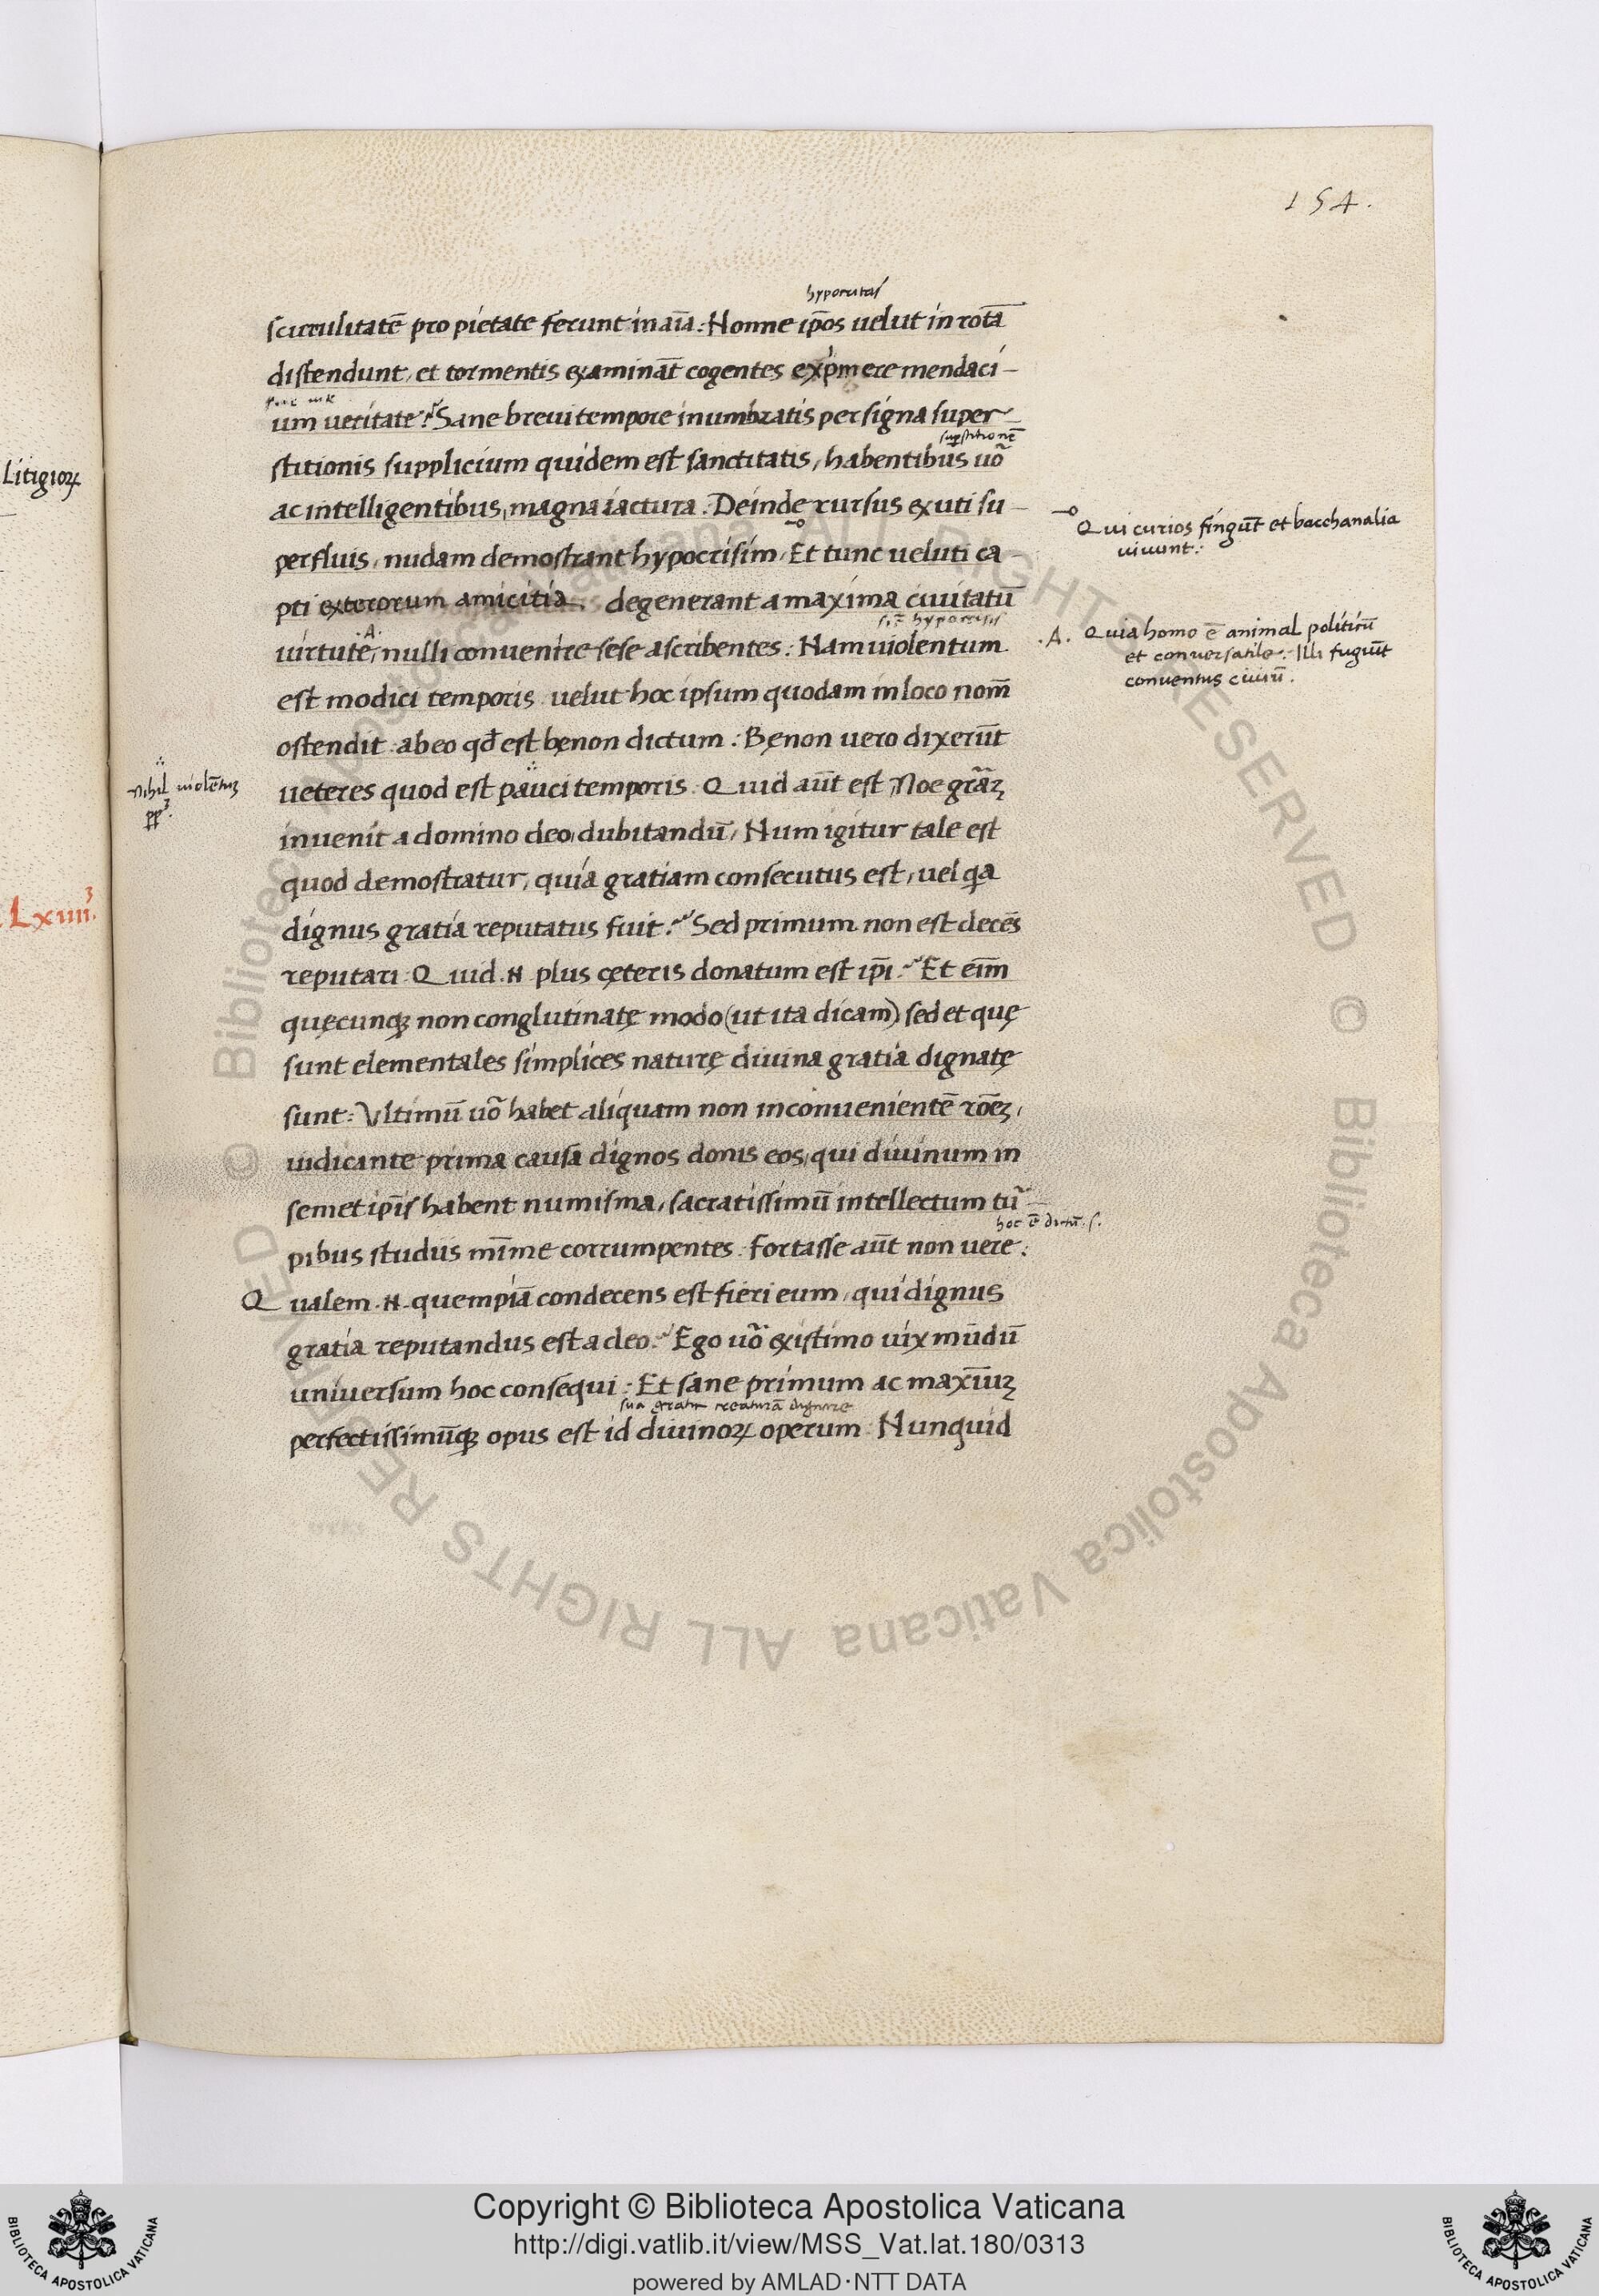 154.
hypocritas
scurrulitatē pro pietate ferunt in aīa: Nonne ip̄os uelut in rotā
distendunt, et tormentis examināt cogentes exp̍mere mendaci-
um ueritate? Sane breui tempore inumbratis per signa super-
superstitionē
stitionis supplicium quidem est sanctitatis, habentibus uo᷃
ac intelligentibus, magna iactura. Deinde rursus exuti su-
perfluis, nudam demostrant hypocrisim. Et tunc ueluti ca-
pti exterorum amicitia, degenerant a maxima ciuitatū
.A.
sic̄ hypocrisis
uirtute, nulli conuenire sese ascribentes: Nam uiolentum
est modici temporis uelut hoc ipsum quodam in loco nom̄
ostendit ab eo qđ est bęnon dictum: Bęnon uero dixerūt
ueteres quod est pauci temporis. Quid aūt est, Noe gr̄aꝫ
inuenit a domino deo, dubitandū, Num igitur tale est
quod demostratur, quia gratiam consecutus est, uel qa
dignus gratia reputatus fuit? Sed primum non est decēs
reputari. Quid .N. plus cęteris donatum est ip̄i? Et eīm
quęcunqꝫ non conglutinatę modo (ut ita dicam) sed et quę
sunt elementales simplices naturę diuina gratia dignatę
sunt: Vltimū uo᷃ habet aliquam non inconuenientē rōeꝫ,
iudicante prima causa dignos donis eos, qui diuinum in
semet ip̄is habent numisma, sacratissimū intellectum tur-
hoc ē dictū .s.
pibus studiis mīme corrumpentes. Fortasse aūt non uere:
Qualem .N. quempiā condecens est fieri eum, qui dignus
gratia reputandus est a deo? Ego uo᷃ existimo uix mūdū
uniuersum hoc consequi: Et sane primum ac maxīuꝫ
sua gratia creaturā dignare
perfectissimūqꝫ opus est id diuinoꝝ operum: Nunquid
Qui curios fingūt et bacchanalia
uiuunt:
.A. Quia homo ē animal politicū
et conuersatile. Illi fugiūt
conuentus ciuiū.
Nihil uiolētuꝫ
pp̄ꝫ.
Litigioꝝ
Lxiiii.
Copyright © Biblioteca Apostolica Vaticana
http://digi.vatlib.it/view/MSS_Vat.lat.180/0313
powered by AMLAD·NTT DATA
BIBLIOTECA APOSTOLICA VATICANA
BIBLIOTECA APOSTOLICA VATICANA
© Biblioteca Apostolica Vaticana ALL RIGHTS RESERVED © Biblioteca Apostolica Vaticana ALL RIGHTS RESERVED